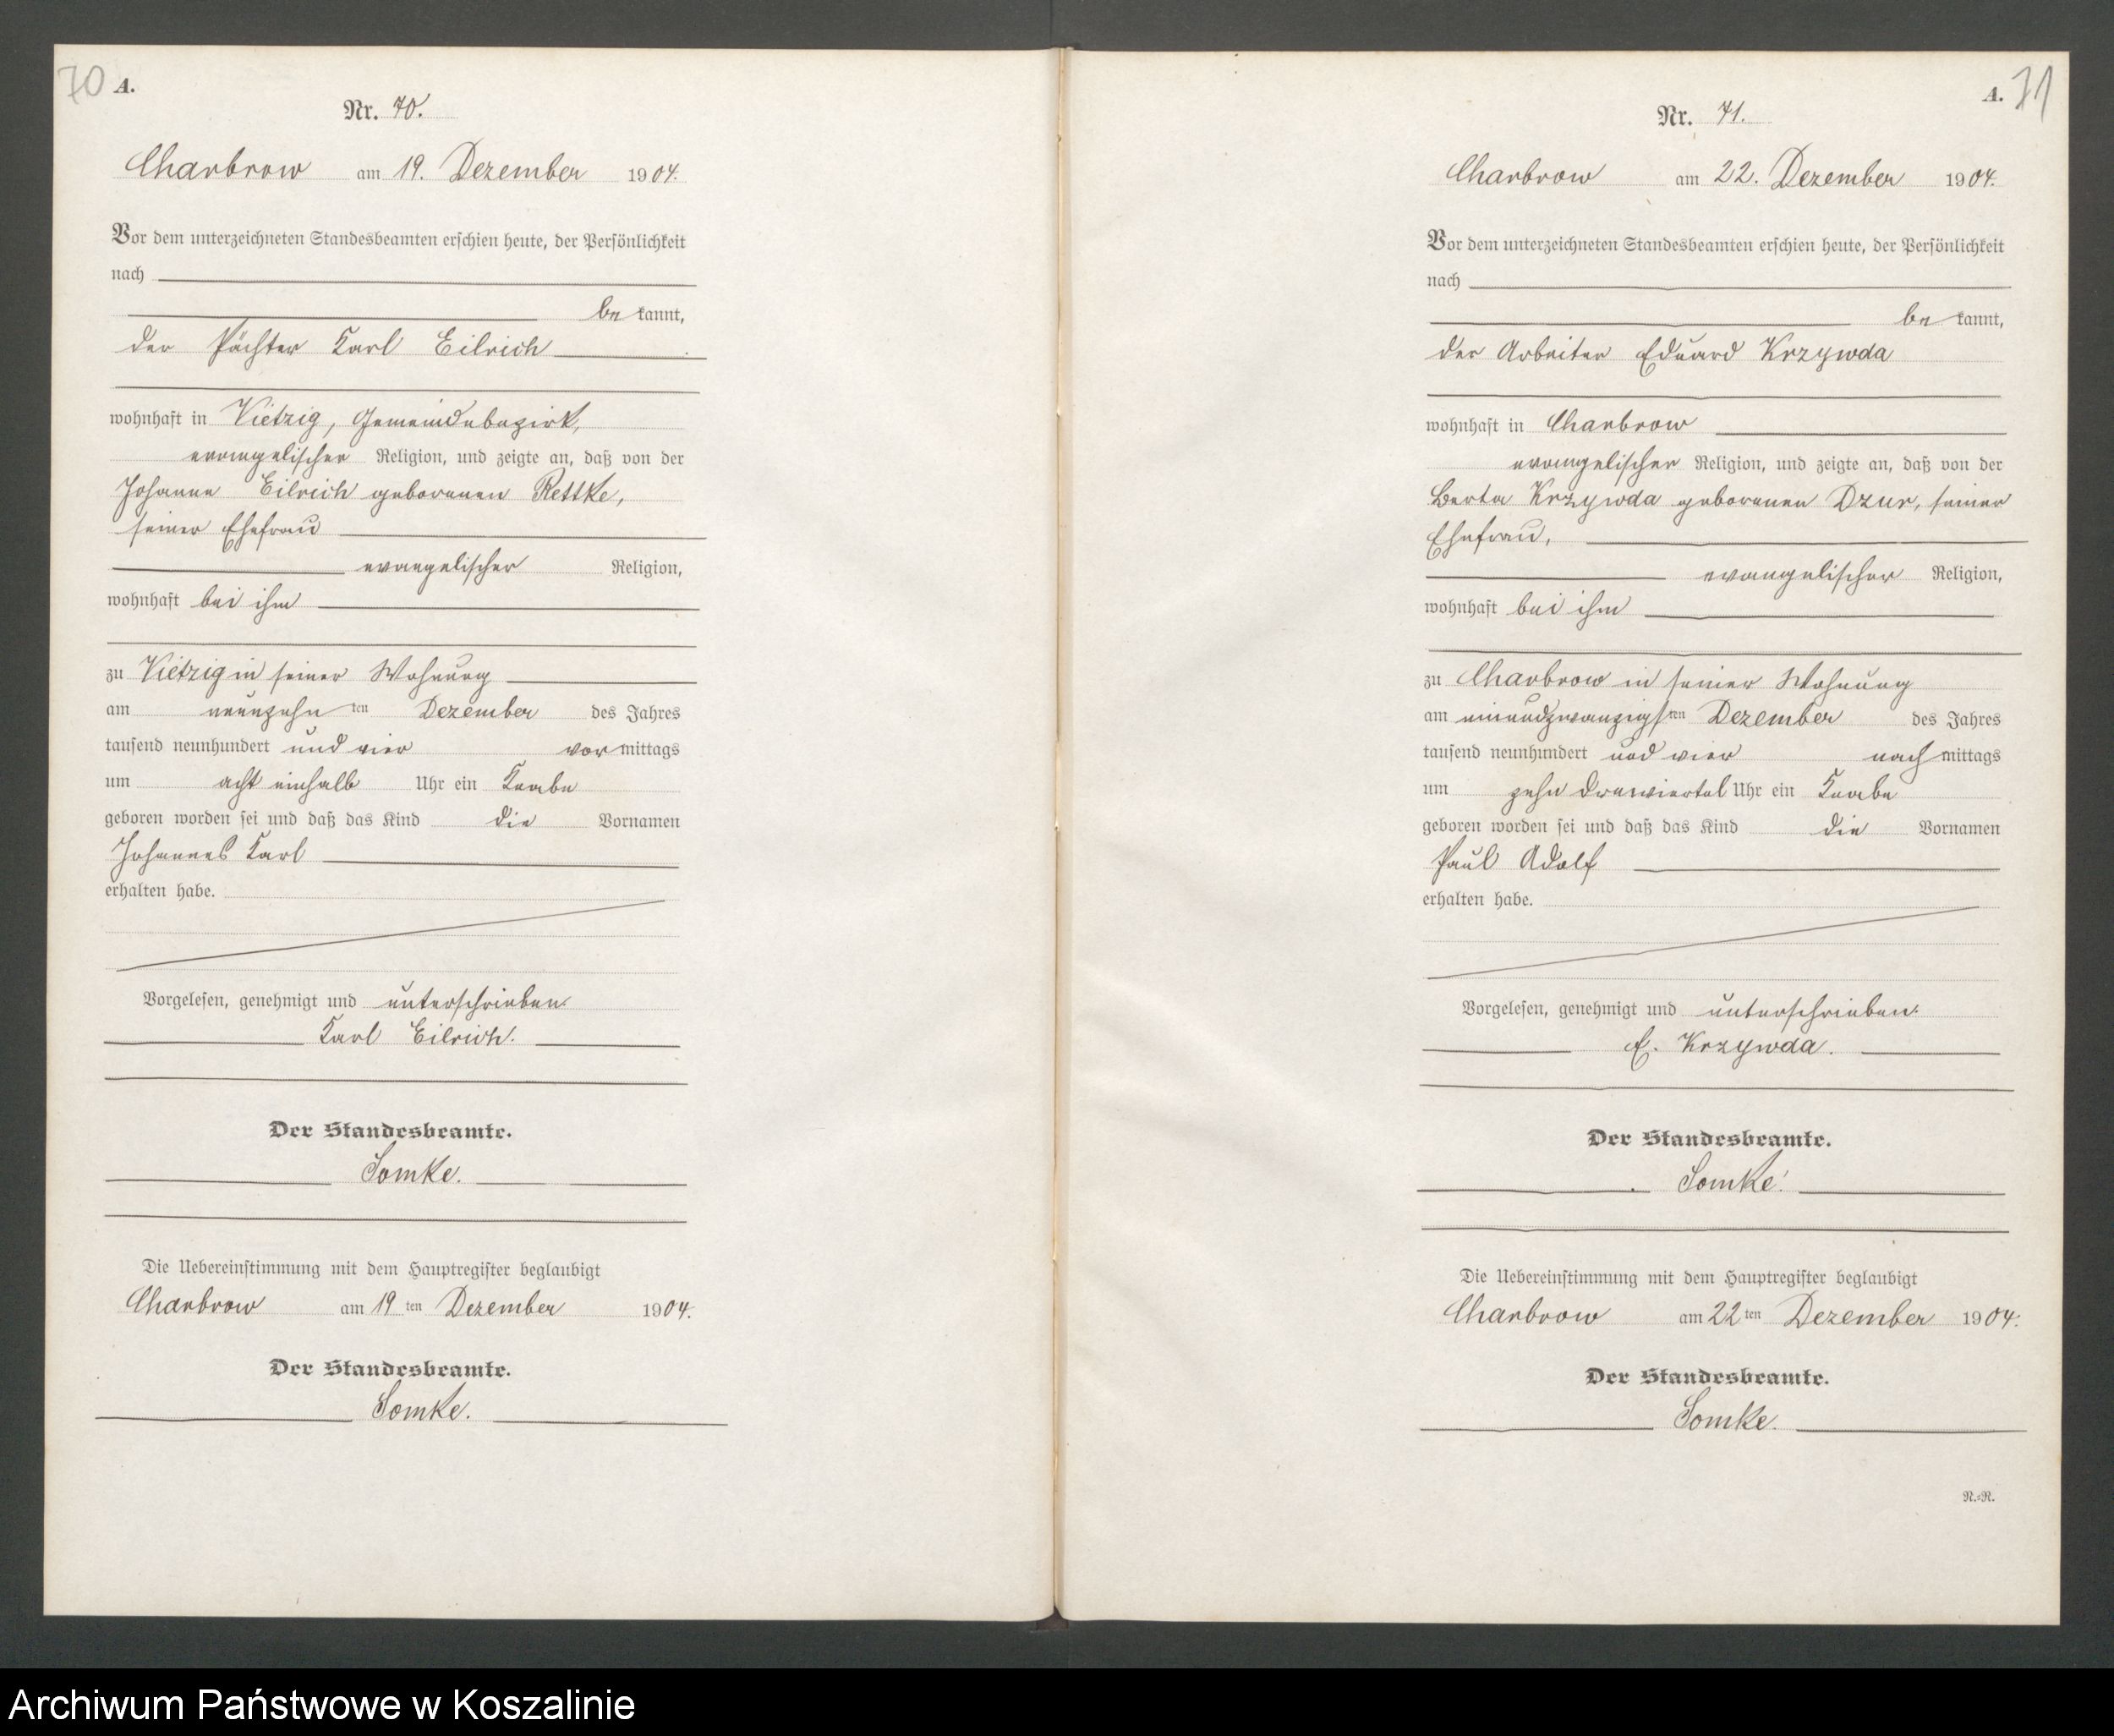 70 A.
Nr. 70.
Charbrow am 19. Dezember 1904.
Vor dem unterzeichneten Standesbeamten erschien heute, der Persönlichkeit
nach
be kannt,
der Pächter Karl Eilrich
wohnhaft in Vietzig, Gemeindebezirk,
evangelischer Religion, und zeigte an, daß von der
Johanne Eilrich geborenen Rettke,
seiner Ehefrau
evangelischer Religion,
wohnhaft bei ihm
zu Vietzig in seiner Wohnung
am neunzehn ten Dezember des Jahres
tausend neunhundert und vier vor mittags
um acht einhalb Uhr ein Knabe
geboren worden sei und daß das Kind die Vornamen
Johannes Karl
erhalten habe.
Vorgelesen, genehmigt und unterschrieben.
Karl Eilrich.
Der Standesbeamte.
Somke.
Die Uebereinstimmung mit dem Hauptregister beglaubigt
Charbrow am 19 ten Dezember 1904.
Der Standesbeamte.
Somke.
A. 71
Nr. 71.
Charbrow am 22. Dezember 1904.
Vor dem unterzeichneten Standesbeamten erschien heute, der Persönlichkeit
nach
be kannt,
der Arbeiter Eduard Krzywda
wohnhaft in Charbrow
evangelischer Religion, und zeigte an, daß von der
Berta Krzywda geborenen Dzur, seiner
Ehefrau,
evangelischer Religion,
wohnhaft bei ihm
zu Charbrow in seiner Wohnung
am einundzwanzigs ten Dezember des Jahres
tausend neunhundert und vier nach mittags
um zehn dreiviertel Uhr ein Knabe
geboren worden sei und daß das Kind die Vornamen
Paul Adolf
erhalten habe.
Vorgelesen, genehmigt und unterschrieben.
E. Krzywda.
Der Standesbeamte.
Somke.
Die Uebereinstimmung mit dem Hauptregister beglaubigt
Charbrow am 22 ten Dezember 1904.
Der Standesbeamte.
Somke.
N.=N.
Archiwum Państwowe w Koszalinie